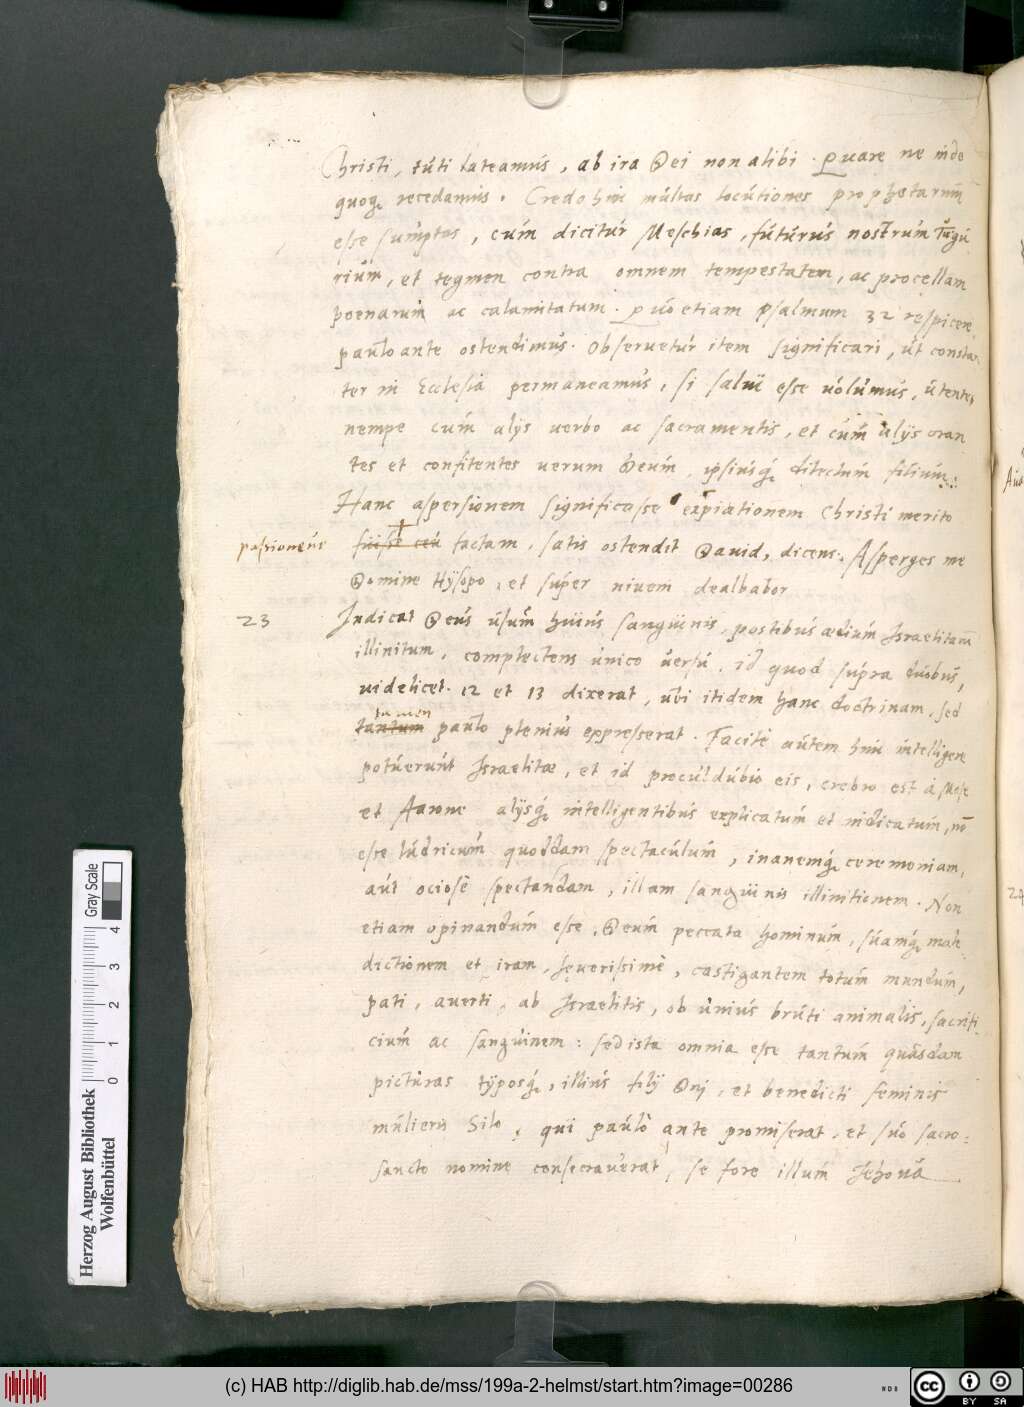 Christi, túti lateamús, ab ira Dei non alibi. Quare ne inde
quoq; recedamus. Credo hinc múltas locútiones prophetarum
esse sumptas, cúm dicitúr Meschias, fútúrús nostrúm túgú
riúm, et tegmen contra omnem tempestatem, ac procellam
poenarum ac calamitatum. Quo etiam psalmum 32 respicere
paulo ante ostendimús. Observetúr item significari, út constan
ter in Ecclesia permaneamús, si salui esse uólúmús, útentes
nempe cúm alijs uerbo ac sacramentis, et cúm alijs oran
tes et confitentes uerum Deúm, ipsiúsq; dilectúm filiúm.
Hanc aspersionem significasse expiationem Christi merito
passioneúe
fúisse ceú factam, satis ostendit Dauid, dicens. Asperges me
Domine Hysopo, et súper niuem dealbabor
23
Indicat Deús úsúm húiús sangúinis, postibús aedium Israelitarum
illinitum, complectens único uersú, id quod súpra dúobús,
uidelicet. 12 et 13 dixerat, ubi itidem hanc doctrinam, sed
tamen
tantum paulo pleniús expresserat. Facile aútem hinc intelligere
potúerúnt Israelitae, et id procúldúbio eis, crebro est à Mose
et Aarone alijsq; intelligentibús explicatúm et indicatúm, nō
esse lúdricúm quoddam spectacúlúm, inanemq; ceremoniam,
aút ociosè spectandam, illam sangúinis illinitionem. Non
etiam opinandúm esse, Deúm peccata hominúm, súamq; male
dictionem et iram, seuerissimè, castigantem totúm mundúm,
pati, auerti, ab Israelitis, ob úniús brúti animalis, sacrifi
ciúm ac sangúinem: sed ista omnia esse tantúm quasdam
pictúras typosq; illiús filij Dei, et benedicti seminis
múlieris Silo, qui paúlò ante promiserat, et súo sacro-
sancto nomine consecrauerat, se fore illúm Jehoúa
Herzog August Bibliothek
Wolfenbüttel
0 1 2 3 4
Gray Scale
(c) HAB http://diglib.hab.de/mss/199a-2-helmst/start.htm?image=00286
cc BY SA